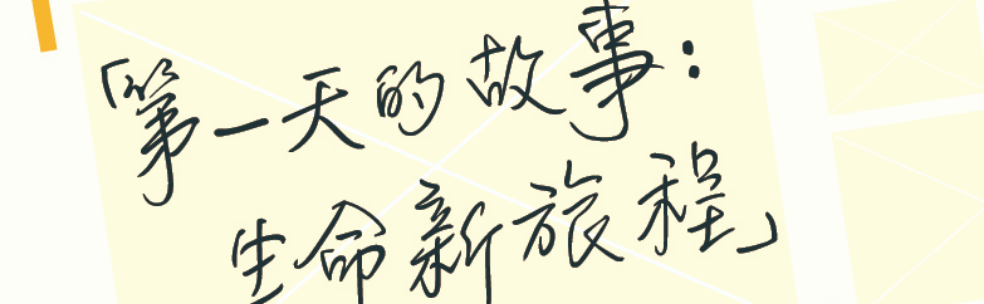 「第一天的故事：
生命新旅程」